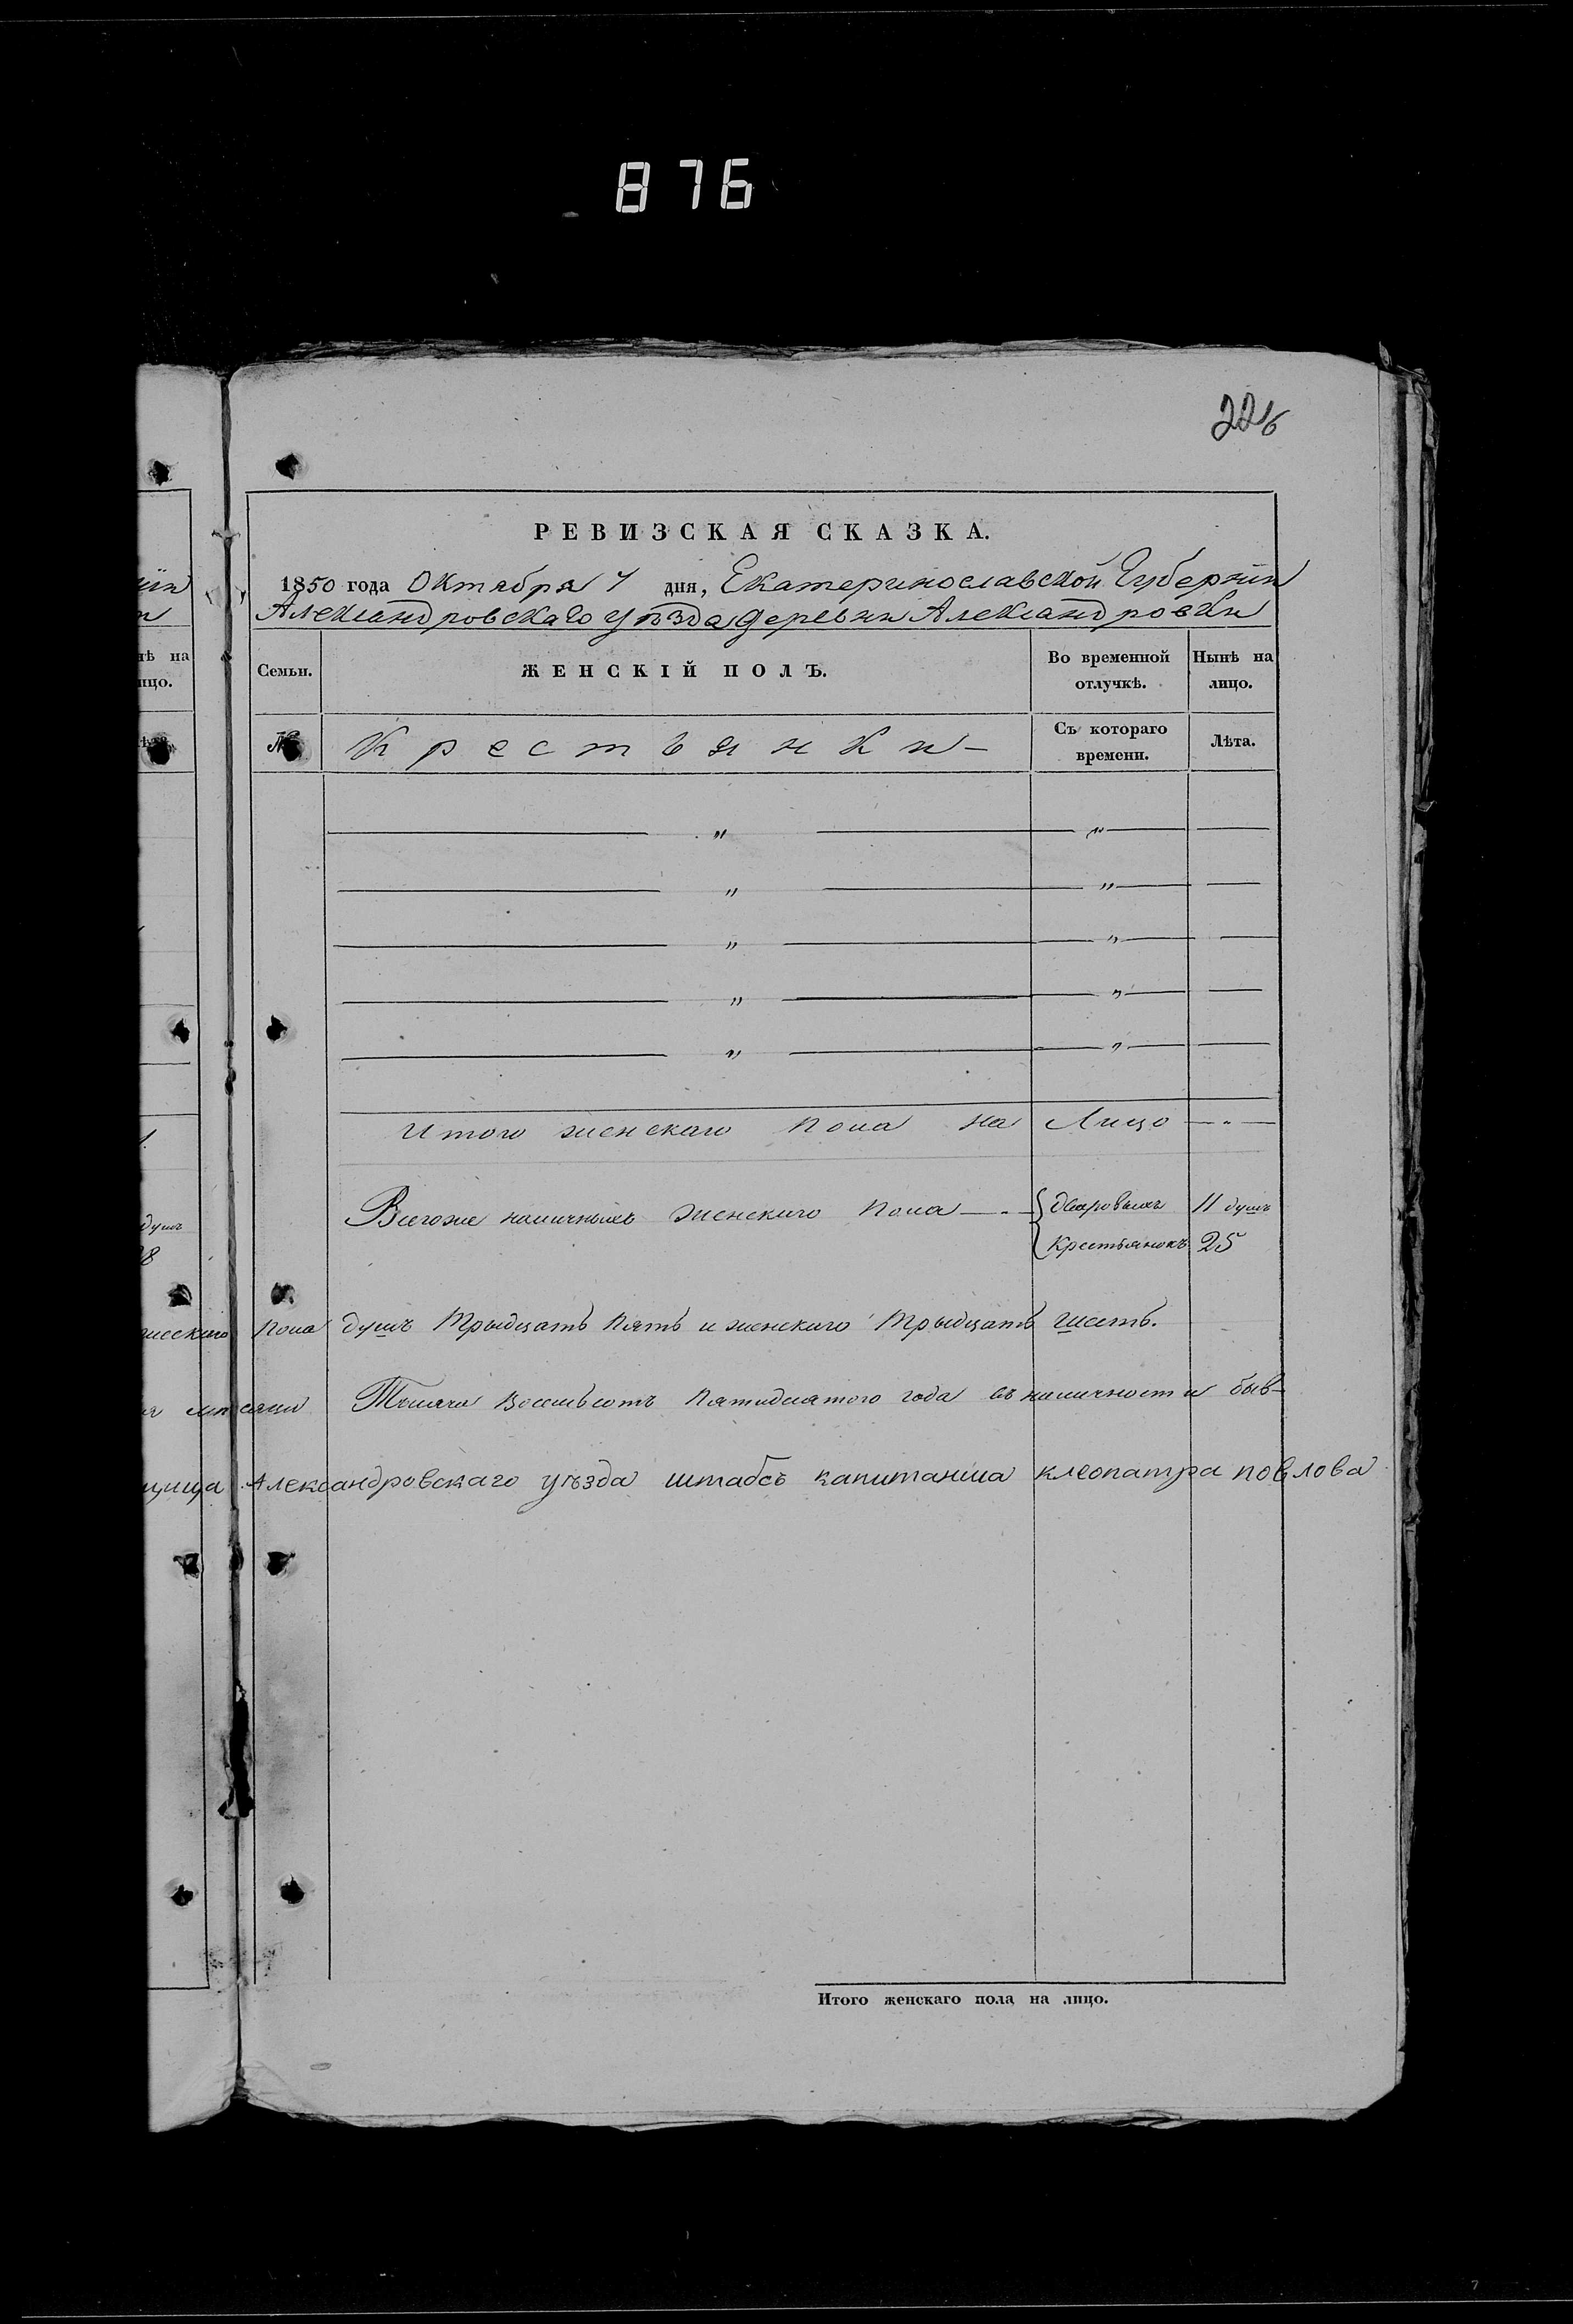 876
226
РЕВИЗСКАЯ СКАЗКА.
1850 года Октября 7 дня, Екатеринославской Губерніи
Александровскаго уѣзда деревни Александровки
Семьи. ЖЕНСКІЙ ПОЛЪ. Во временной отлучкѣ. Нынѣ на лицо.
№ Крестьянки - Съ котораго времени. Лѣта.
Итого женскаго пола на Лицо — „ —
Всегоже наличныхъ женскаго пола — „ — { дворовыхъ 11 душъ
крестьянокъ 25
пола душъ Трыдцать Пять и женскаго Трыдцать шесть.
Тысяча Восемьсотъ Пятидесятого года въ наличности быв-
Александровскаго уѣзда штабсъ капитанша клеопатра повлова
Итого женскаго пола на лицо.